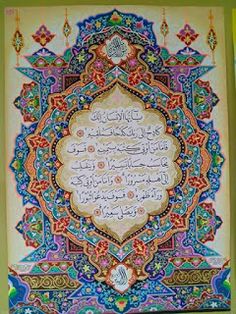 يَٰٓأَيُّهَا ٱلْإِنسَٰنُ إِنَّكَ
كَادِحٌ إِلَىٰ رَبِّكَ كَدْحًا فَمُلَٰقِيهِ
فَأَمَّا مَنْ أُوتِىَ كِتَٰبَهُۥ بِيَمِينِهِۦ فَسَوْفَ
يُحَاسَبُ حِسَابًا يَسِيرًا وَيَنقَلِبُ
إِلَىٰٓ أَهْلِهِۦ مَسْرُورًا وَأَمَّا مَنْ أُوتِىَ كِتَٰبَهُۥ
وَرَآءَ ظَهْرِهِۦ فَسَوْفَ يَدْعُوا۟ ثُبُورًا
وَيَصْلَىٰ سَعِيرًا